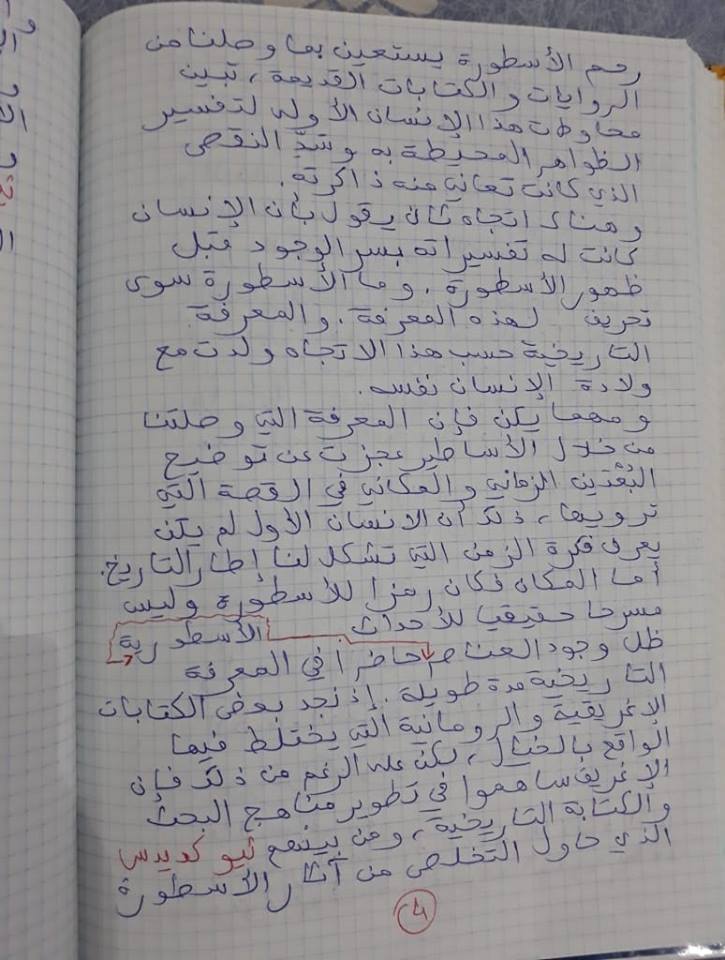 رحم الأسطورة يستعين بما وصلنا من
الروايات والكتابات القديمة، تبين
محاولات هذا الإنسان الأولى لتفسير
الظواهر المحيطة به وسَدِّ النقص
الذي كانت تعاني منه ذاكرته.
وهناك اتجاه ثان يقول بأن الإنسان
كانت له تفسيراته بسر الوجود قبل
ظهور الأسطورة. وما الأسطورة سوى
تحريف لهذه المعرفة. والمعرفة
التاريخية حسب هذا الاتجاه ولدت مع
ولادة الإنسان نفسه.
ومهما يكن فإن المعرفة التي وصلتنا
من خلال الأساطير عجزت عن توضيح
البُعْدَين الزماني والمكاني في القصة التي
ترويها، ذلك أن الانسان الأول لم يكن
يعرف فكرة الزمن التي تشكل لنا إطار التاريخ.
أما المكان فكان رمزا للأسطورة وليس
مسرحا حقيقيا للأحداث
الأسطورية
ظل وجود العناصر حاضرا في المعرفة
التاريخية مدة طويلة. إذ نجد بعض الكتابات
الإغريقية والرومانية التي يختلط فيها
الواقع بالخيال، لكن على الرغم من ذلك فإن
الإغريق ساهموا في تطوير مناهج البحث
والكتابة التاريخية، ومن بينهم تيوكديدس
الذي حاول التخلص من آثار الأسطورة
4